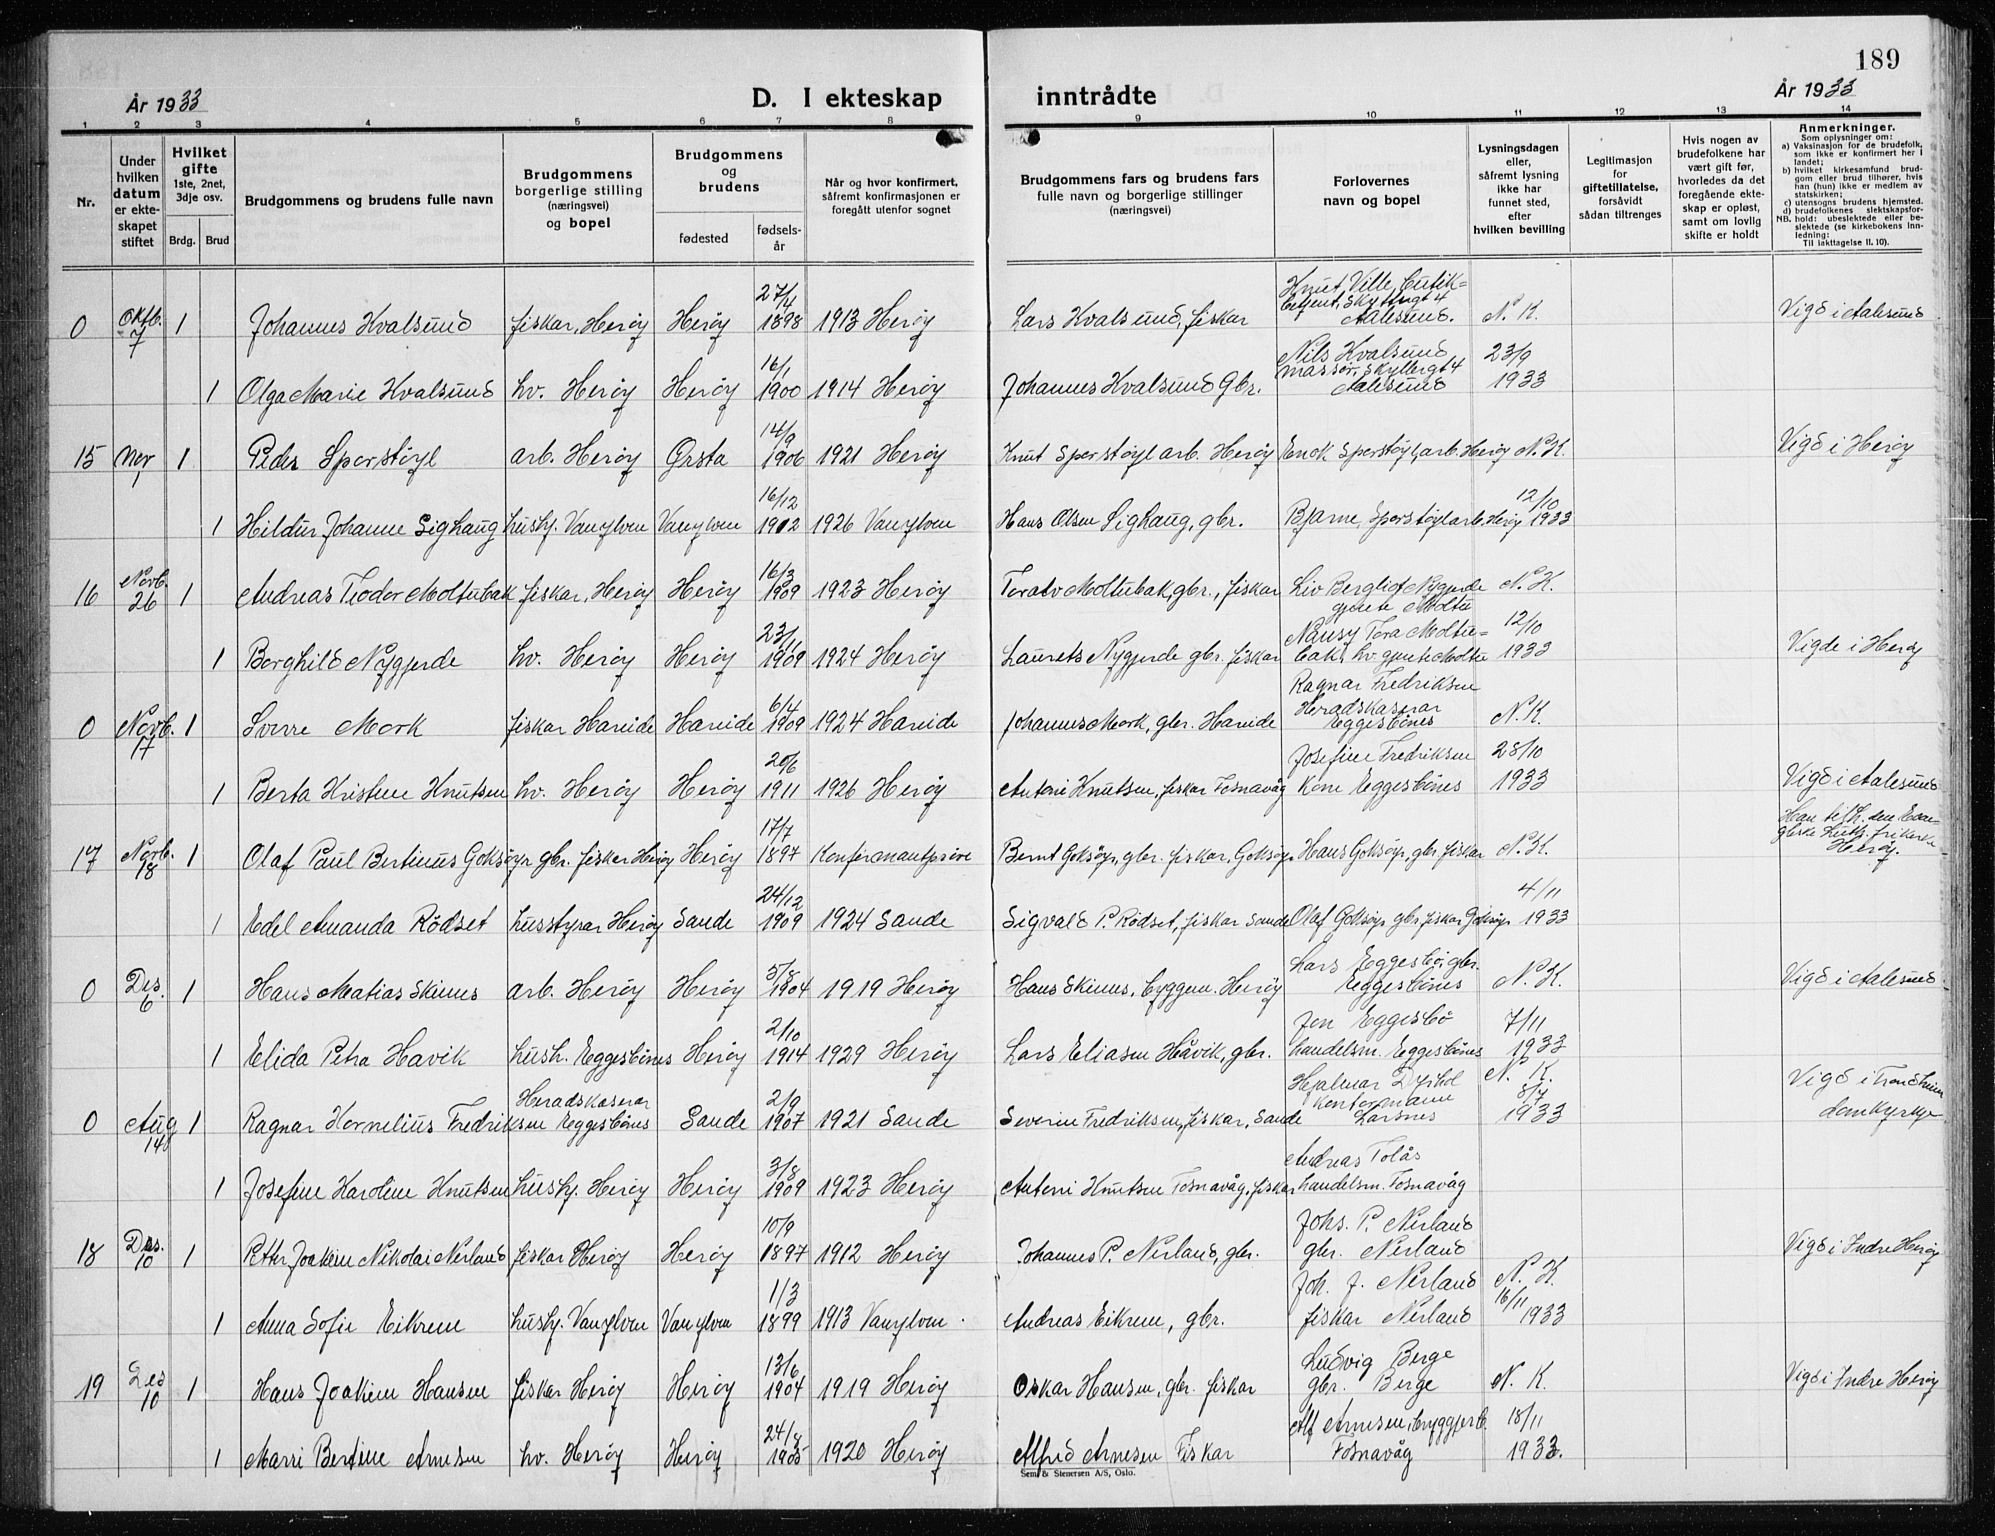 189
År 1933
D. I ekteskap inntrådte
År 1933
1 2 3 4 5 6 7 8 9 10 11 12 13 14
Nr.
Under hvilken datum er ekteskapet stiftet
Hvilket gifte 1ste, 2net, 3dje osv.
Brdg. Brud
Brudgommens og brudens fulle navn
Brudgommens borgerlige stilling (næringsvei) og bopel
Brudgommens og brudens
fødested
fødselsår
Når og hvor konfirmert, såfremt konfirmasjonen er foregått utenfor sognet
Brudgommens fars og brudens fars fulle navn og borgerlige stillinger (næringsvei)
Forlovernes navn og bopel
Lysningsdagen eller, såfremt lysning ikke har funnet sted, efter hvilken bevilling
Legitimasjon for giftetillatelse, forsåvidt sådan tiltrenges
Hvis nogen av brudefolkene har vært gift før, hvorledes da det foregående ekteskap er opløst, samt om lovlig skifte er holdt
Anmerkninger.
Som oplysninger om:
a) Vaksinasjon for de brudefolk, som ikke er konfirmert her i landet;
b) hvilket kirkesamfund brudgom eller brud tilhører, hvis han (hun) ikke er medlem av statskirken;
c) utensogns brudens hjemsted.
d) brudefolkenes slektskapsforhold: ubeslektede eller beslektede (se kirkebokens innledning:
NB.
Til iakttagelse II. 10).
0 Oktb. 7 1 Johannes Kvalsund fiskar, Herøy Herøy 27/4 1898 1913 Herøy Lars Kvalsund, fiskar Knut Ville, Skyttergt 4 Aalesund. N. K. Vigd i Aalesund
1 Olga Marie Kvalsund hv. Herøy Herøy 16/1 1900 1914 Herøy Johannes Kvalsund Gbr. Nils Kvalsund massør, Skyttergt 4 Aalesund 23/9 1933
15 Nov 1 1 Peder Sporstøyl arb. Herøy Ørsta 14/9 1906 1921 Herøy Knut Sporstøyl arb. Herøy Enok Sporstøyl, arb. Herøy N. K. Vigd i Herøy
1 Hildur Johanne Sighaug hushj. Vanylven Vanylven 16/12 1912 1926 Vanylven Hans Olsen Sighaug, gbr. Bjarne Sporstøyl arb. Herøy 12/10 1933
16 Novb. 26 1 Andreas Teodor Moltubak fiskar, Herøy Herøy 16/3 1909 1923 Herøy Toralv Moltubak, gbr., fiskar Liv Bergliot Nygjerde gjente Moltu N. K.
1 Borghild Nygjerde hv. Herøy Herøy 23/11 1909 1924 Herøy Laurets Nygjerde gbr. fiskar Nansy Tora Moltubak, hv gjente Moltu 12/10 1933 Vigde i Herøy
0 Novb. 17 1 Sverre Mork fiskar Hareide Hareide 6/4 1909 1924 Hareide Johannes Mork, gbr. Hareide Ragnar Fredriksen Heradskaserar Eggesbønes N. K.
1 Berta Kristine Knutsen hv. Herøy Herøy 20/6 1911 1926 Herøy Antoni Knutsen, fiskar Fosnavåg Josefine Fredriksen Kone Eggesbønes 28/10 1933 Vigd i Aalesund
17 Novb. 18 1 Olaf Paul Bertinus Goksøyr gbr. fiskar Herøy Herøy 17/7 1897 Bernt Goksøyr, gbr. fiskar, Goksøyr Hans Goksøyr, gbr. fiskar N. K. Han tilh. den Evangliske Luth. frikyrkje Herøy.
1 Edel Amanda Rødset husstyrar Herøy Sande 24/12 1909 1924 Sande Sigvald P. Rødset, fiskar Sande Olaf Goksøyr gbr. fiskar Goksøyr 4/11 1933
0 Des. 6 1 Hans Matias Skinnes arb. Herøy Herøy 5/8 1904 1919 Herøy Hans Skinnes, byggm. Herøy Lars Eggesbø, gbr. Eggesbønes N. K. Vigd i Aalesund.
1 Elida Petra Havik hush. Eggesbønes Herøy 2/10 1914 1929 Herøy Lars Eliasen Håvik, gbr. Jon Eggesbø handelsm. Eggesbønes 7/11 1933
0 Aug 14 1 Ragnar Kornelius Fredriksen Heradskaserar Eggesbønes Sande 2/9 1907 1921 Sande Severin Fredriksen, fiskar, Sande Hjalmar Dyshol kontormann Larsnes N. K. 8/7 1933 Vigd i Trondheim domkyrkje
1 Josefine Karoline Knutsen hushj. Herøy Herøy 3/8 1909 1923 Herøy Antoni Knutsen Fosnavåg, fiskar Andreas Tolås handelsm. Fosnavåg
18 Des. 10 1 Petter Joakim Nikolai Nerland fiskar Herøy Herøy 10/9 1897 1912 Herøy Johannes P. Nerland, gbr. Johs. P. Nerland gbr. Nerland Vigd i Indre Herøy
1 Anna Sofie Eikrem hushj. Vanylven Vanylven 1/3 1899 1913 Vanylven Andreas Eikrem, gbr. Joh. J. Nerland fiskar Nerland N. K. 16/11 1933
19 Des 10 1 Hans Joakim Hansen fiskar Herøy Herøy 13/6 1904 1919 Herøy Oskar Hansen, gbr. fiskar Ludvig Berge gbr. Berge N. K. Vigd i Indre Herøy
1 Marri Bertine Arnesen hv. Herøy Herøy 24/8 1905 1920 Herøy Alfred Arnesen Fiskar Alf Arnesen, bryggjarb. Fosnavåg 18/11 1933.
Sem & Stenersen A/S, Oslo.